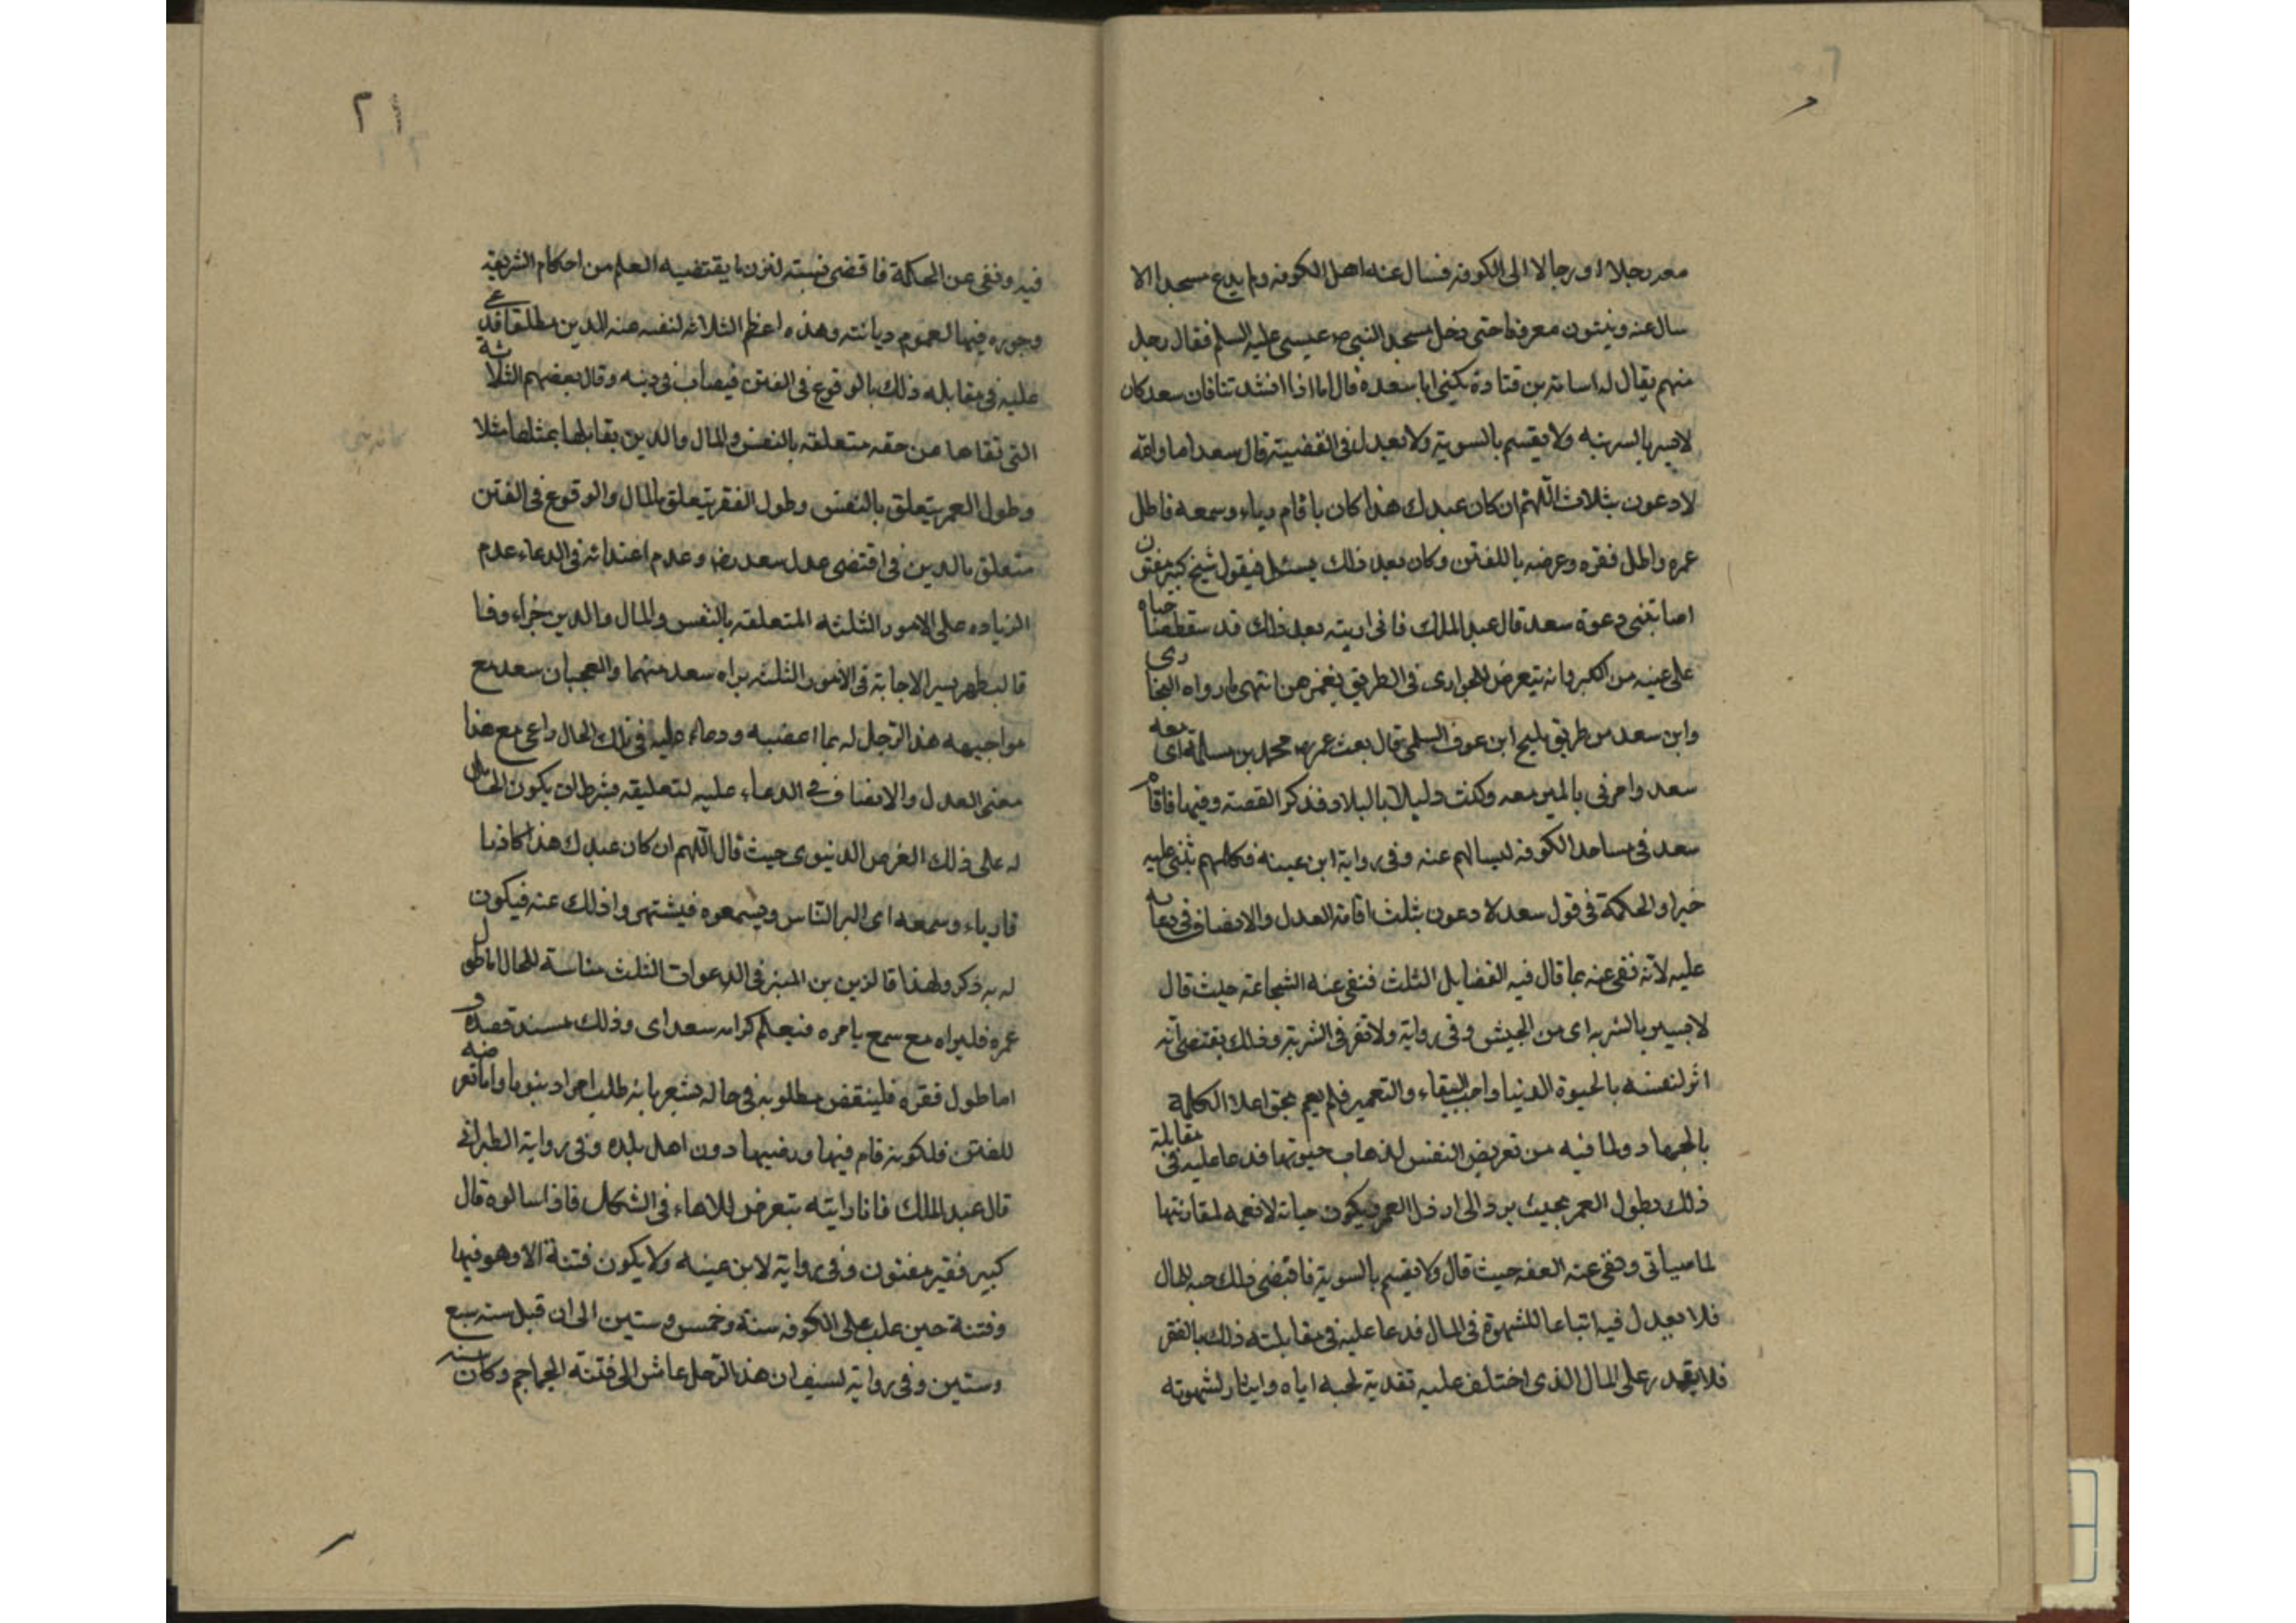 معه رجلا او رجالا الى الكوفه فسال عنه اهل الكوفه ولم يدع مسجدا الا
سال عنه ويثنون معروفا حتى دخل مسجد النبى عيسى عليه السلم فقال رجل
منهم يقال له اسامة بن قتادة يكنى ابا سعدة قال اما اذا انشد تنا فان سعد كان
لا يسير بالسريه ولا يقسم بالسوية ولا يعدل فى القضية قال سعد اما والله
لادعون بثلاث اللهم ان كان عبدك هذا كاذبا قام رياء وسمعه فاطل
عمره واطل فقره وعرضه باللفتن وكان بعد ذلك يسئل فيقول شيخ كبير مفتون
اصابتنى دعوة سعد قال عبد الملك فانى رايته بعد ذلك قد سقط حاجباه
على عينيه من الكبر وانه يتعرض للجوارى فى الطريق يغمزهن انتهى ما رواه البخارى
وابن سعد من طريق مليح ابن عوف السلمى قال بعث عمر رض محمد بن مسلمة اى معه
سعد وامرنى بالمسير معه وكنت دليلا بالبلاد فذكر القصة وفيها فاقام
سعد فى مساجد الكوفه ليسالهم عنه وفى رواية ابن عيينه فكلهم يثنى عليه
خيرا والحكمة فى قول سعد لا دعون بثلث اقامة العدل والانصاف فى دعائه
عليه لانه نفى عنه بما قال فيه الفضايل الثلث فنفى عنه الشجاعة حيث قال
لا يسير بالسريه اى من الجيش وفى رواية ولا تنفر فى السرية وذلك يقتضى انه
اثر لنفسه بالحيوة الدنيا واحب البقاء والتعمير فلم يقم بحق اعلاء الكلمة
بالجهاد ولما فيه من تعريض النفس لذهاب حيوتها فدعا عليه فى مقابلة
ذلك بطول العمر بحيث يرد الى ارذل العمر ويكون حياته لا نعمه لمقارنتها
لما سياتى ونفى عنه العفه حيث قال ولا يقسم بالسوية فاقتضى ذلك حبه المال
فلا يعدل فيه اتباعا للشهوة فى المال فدعا عليه فى مقابلته ذلك بالفقر
فلا يقدر على المال الذى اختلف عليه تقدية لحبه اياه وايثار لشهوته
٢١
فيه ونفى عن الحكمة فاقتضى نسبته لغير ما يقتضيه العلم من احكام الشريعة
وجوره فيها لعموم ديانته وهذه اعظم الثلاثه لنفسه عنه الدين مطلقا فدعى
عليه فى مقابله ذلك بالوقوع فى الفتن فيصاب فى دينه وقال بعضهم الثلاثة
التى نفاها من حقه متعلقه بالنفس والمال والدين يقابلها بمثلها مثلا
وطول العمر يتعلق بالنفس وطول الفقر يتعلق بالمال والوقوع فى الفتن
متعلق بالدين فى اقتضى عدل سعد رض وعدم اعتدائه فى الدعاء عدم
الزياده على الامور الثلثه المتعلقه بالنفس والمال والدين جزاء وفا
قا ليظهر سر الاجابة فى الامور الثلثه براه سعد منهما والعجب ان سعد مع
مواجهه هذا الرجل له بما اعضبه ودعاء عليه فى تلك الحال راعى مع هذا
معنى العدل والانصاف فى الدعاء عليه لتعليقه بشرط ان يكون الحامل
له على ذلك الغرض الدنيوى حيث قال اللهم ان كان عبدك هذا كاذبا
قام رياء وسمعه اى ليراه الناس ويسمعوه فيشتهروا ذلك عنه فيكون
له به ذكر ولهذا قال زين بن المنير فى الدعوات الثلث مناسة للحال اما طول
عمره فليراه مع سمع بامره فيعلم كرامه سعد اى وذلك
اما طول فقره فلينقض مطلوبه فى حاله يشعر بانه طلب امرا دنيويا واما تعرضه
للفتن فلكونه قام فيها ورضيها دون اهل بلده وفى رواية الطبرانى
قال عبد الملك فانا رايته يتعرض للاماء فى السكك فاذا سالوه قال
كبير فقير مفتون وفى رواية لابن عيينه ولا يكون فتنة الا وهو فيها
وفتنة حين غلب على الكوفه سنة وخمس وستين الى ان قبل سنه سبع
وستين وفى رواية لسيف ان هذا الرجل عاش الى فتنة الجماجم وكان سنه